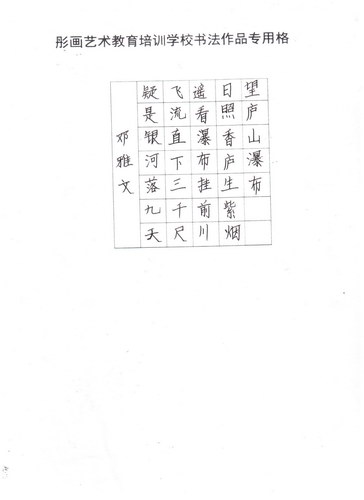 彤画艺术教育培训学校书法作品专用格
望庐山瀑布
日照香庐生紫烟
遥看瀑布挂前川
飞流直下三千尺
疑是银河落九天
邓雅文